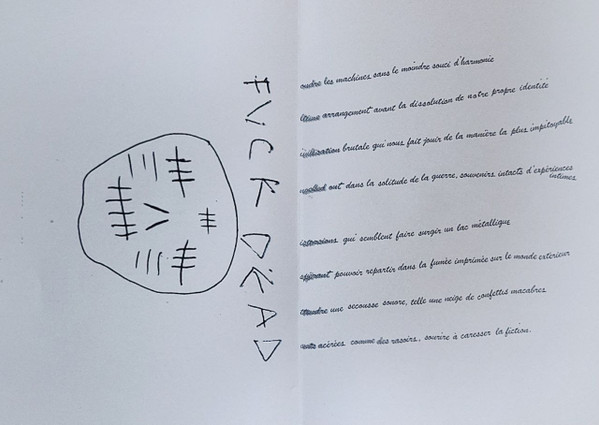 FVCK DEAD
les machines sans le moindre souci d'harmonie
arrangement avant la dissolution de notre propre identité
brutale qui nous fait jouir de la manière la plus impitoyable
out dans la solitude de la guerre, souvenirs intacts d'expériences
intimes
qui semblent faire surgir un lac métallique
pouvoir repartir dans la fumée imprimée sur le monde extérieur
une secousse sonore, telle une neige de confettis macabres
acérées comme des rasoirs, sourire à caresser la fiction.